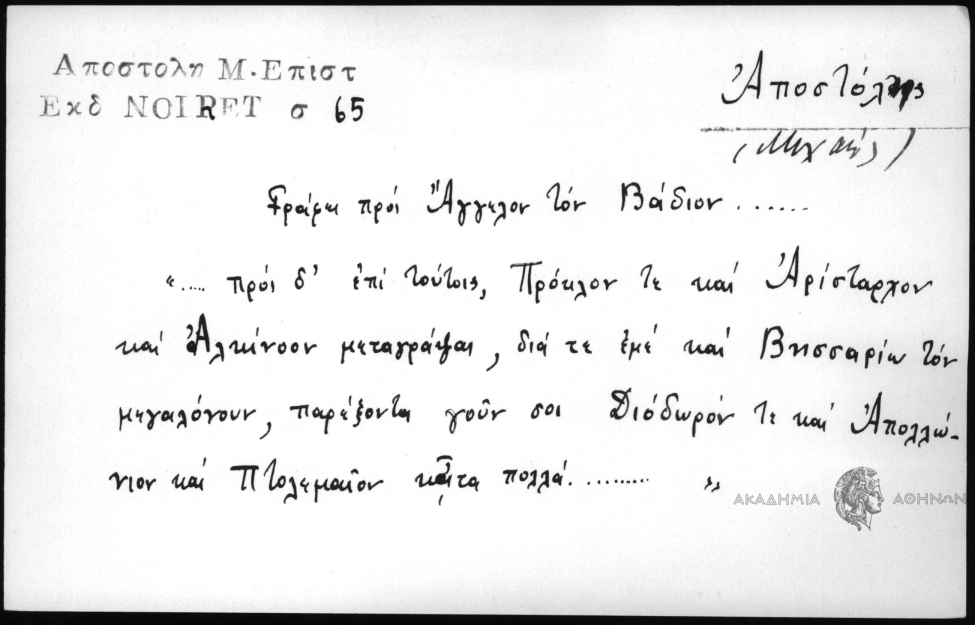 Αποστολη Μ. Επιστ
Εκδ NOIRET σ 65
Ἀποστόλης
(Μιχαήλ)
Γράφει πρὸς Ἄγγελον τὸν Βάδιον .......
"..... πρὸς δ' ἐπὶ τούτοις, Πρόκλον τε καὶ Ἀρίσταρχον
καὶ Ἀλκίνοον μεταγράψαι, διά τε ἐμὲ καὶ Βησσαρίω τὸν
μεγαλόνουν, παρέξοντα γοῦν σοι Διόδωρόν τε καὶ Ἀπολλώ-
νιον καὶ Πτολεμαῖον κᾆτα πολλά. .......... "
ΑΚΑΔΗΜΙΑ ΑΘΗΝΩΝ